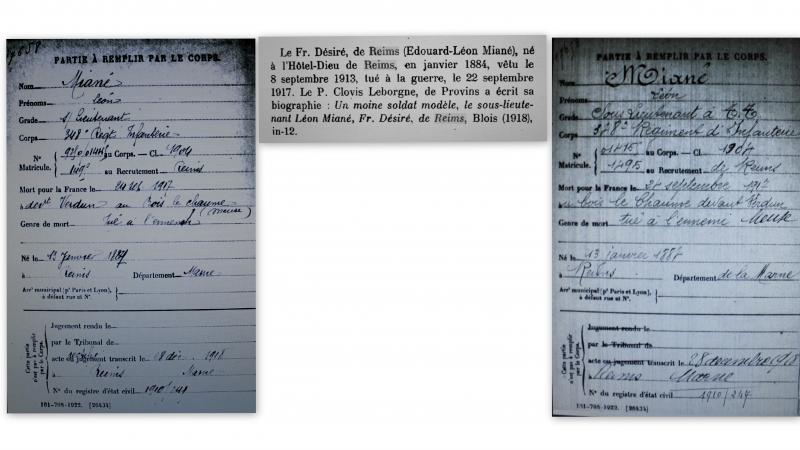 PARTIE À REMPLIR PAR LE CORPS.
Nom Miané
Prénoms Léon
Grade S/Lieutenant
Corps 348e Régt Infanterie
N° au Corps. — Cl. 1904
Matricule. au Recrutement Reims
Mort pour la France le 1917
à devt Verdun au Bois le chaume
(Meuse)
Genre de mort tué à l'ennemi
Né le 13 Janvier
à Reims Département Marne
Arrt municipal (pr Paris et Lyon),
à défaut rue et N°.
Cette partie
n'est pas à remplir
par le Corps.
Jugement rendu le
par le Tribunal de
acte ou jugement transcrit le 1918
à Reims Marne
N° du registre d'état civil
131-708-1922. [26434]
Le Fr. Désiré, de Reims (Edouard-Léon Miané), né
à l'Hôtel-Dieu de Reims, en janvier 1884, vêtu le
8 septembre 1913, tué à la guerre, le 22 septembre
1917. Le P. Clovis Leborgne, de Provins a écrit sa
biographie : Un moine soldat modèle, le sous-lieute-
nant Léon Miané, Fr. Désiré, de Reims, Blois (1918),
in-12.
PARTIE À REMPLIR PAR LE CORPS.
Nom Miané
Prénoms Léon
Grade Sous Lieutenant à T.T.
Corps Régiment d'Infanterie
N° au Corps. — Cl.
Matricule. 1495 au Recrutement de Reims
Mort pour la France le septembre 1917
au bois le Chaume devant Verdun
Genre de mort tué à l'ennemi Meuse
Né le 13 janvier
à Reims Département de la Marne
Arrt municipal (pr Paris et Lyon),
à défaut rue et N°.
Cette partie
n'est pas à remplir
par le Corps.
Jugement rendu le
par le Tribunal de
acte ou jugement transcrit le 28 décembre 1918
à Reims Marne
N° du registre d'état civil 1910/247
131-708-1922. [26434]